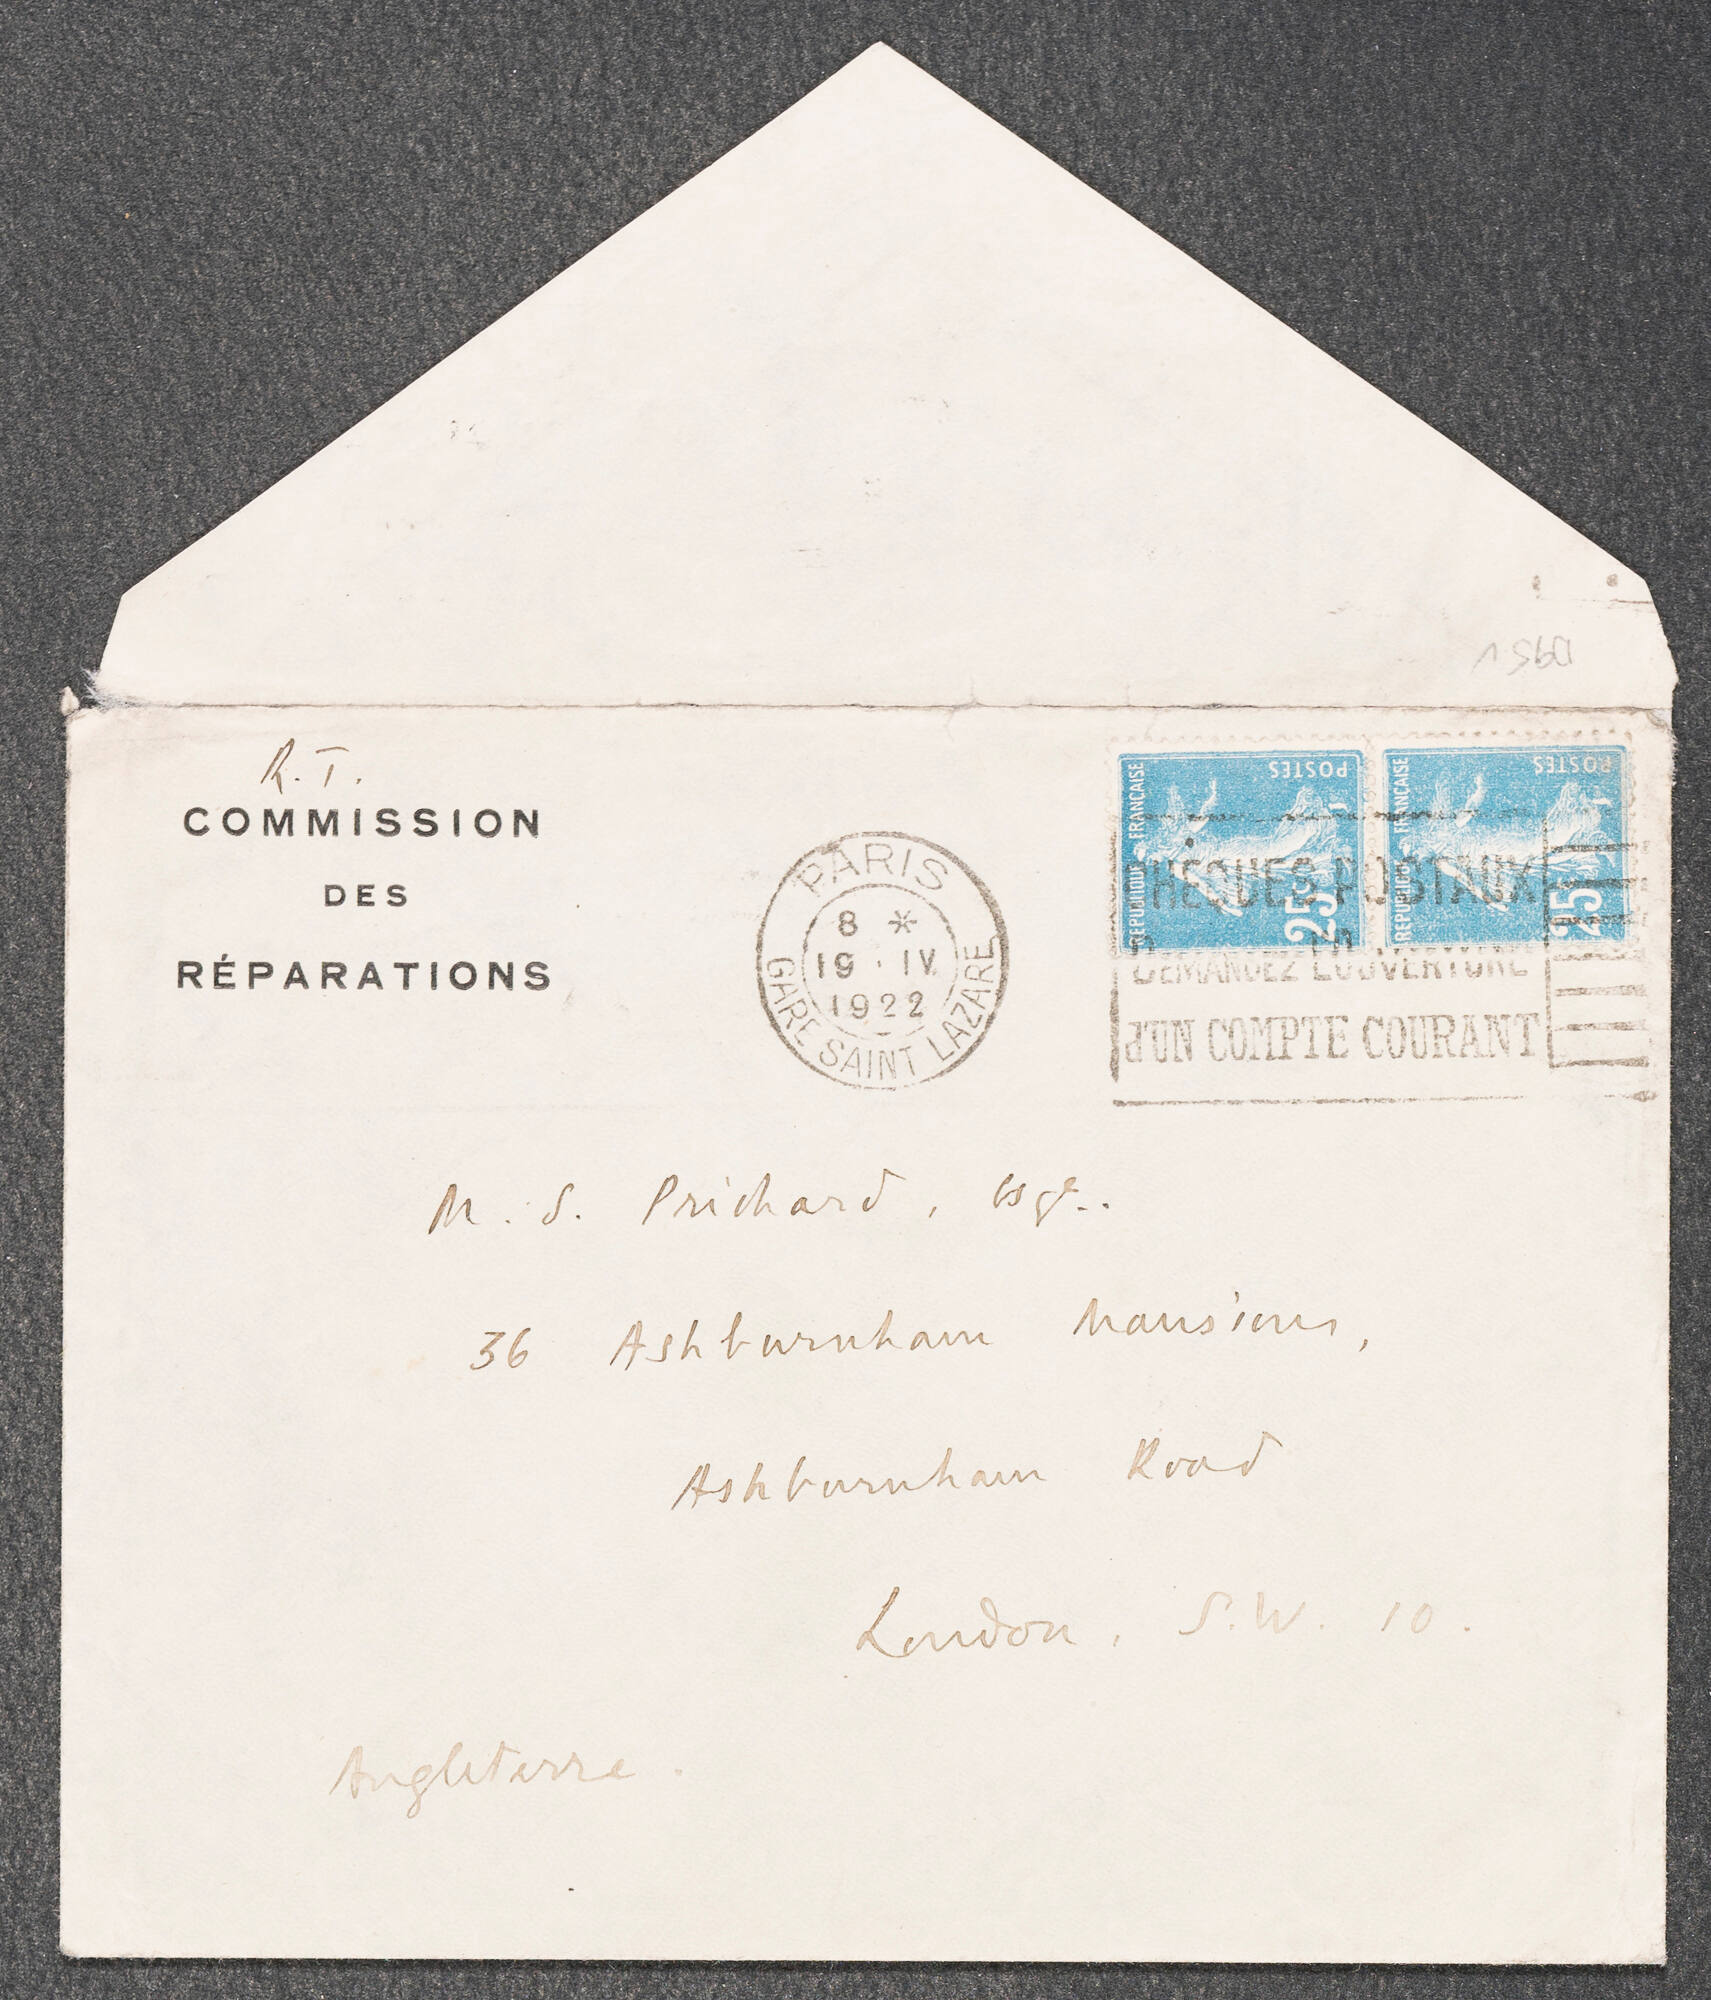 R.T.
COMMISSION
DES
RÉPARATIONS
PARIS
8 *
19 · IV
1922
GARE SAINT LAZARE
REPUBLIQUE FRANÇAISE
POSTES
25c
REPUBLIQUE FRANÇAISE
POSTES
25c
CHÈQUES POSTAUX
DEMANDEZ L'OUVERTURE
d'UN COMPTE COURANT
M. S. Prichard, Esqre.
36 Ashburnham Mansions,
Ashburnham Road
London, S.W. 10.
Angleterre.